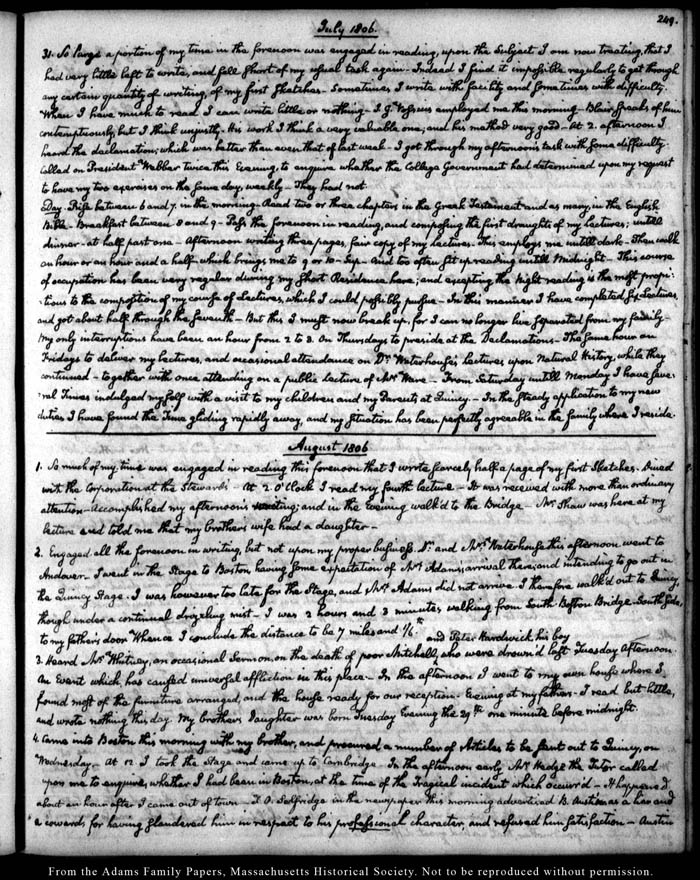 249.
July 1806.
31. So large a portion of my time in the forenoon was engaged in reading, upon the Subject I am now treating, that I
had very little left to write, and fell short of my usual task again. Indeed I find it impossible regularly to get through
any certain quantity of writing, of my first Sketches. Sometimes I write with facility and sometimes with difficulty.
When I have much to read I can write little or nothing. I. G. Vossius employed me this morning. Blair speaks of him
contemptuously, but I think unjustly. His work I think a very valuable one; and his method very good. At 2. afternoon I
heard the declamations; which was better than even that of last week. I got through my afternoon's task with some difficulty.
Called on President Webber twice this Evening, to enquire whether the College Government had determined upon my request
to have my two exercises on the same day, weekly. They had not.
Day. Rise between 6 and 7. in the morning. Read two or three chapters in the Greek Testament and as many, in the English
Bible. Breakfast between 8 and 9. Pass the forenoon in reading, and composing the first draught of my lectures; untill
dinner at half past one. Afternoon writing three pages, fair copy of my lectures. This employs me untill dark. Then walk
an hour or an hour and a half which brings me to 9 or 10. Sup. And too often sit up reading untill Midnight. This course
of occupation has been very regular during my short Residence here; and excepting the Night reading is the most propi-
tious to the composition of my course of Lectures, which I could possibly pursue. In this manner I have completed six Lectures,
and got about half through the seventh. But this I must now break up, for I can no longer live separated from my family.
My only interruptions have been an hour from 2 to 3. On Thursdays to preside at the Declamations. The same hour on
Fridays to deliver my lectures, and occasional attendance on Dr. Waterhouse's lectures upon Natural History, while they
continued together with once attending on a public lecture of Mr. Ware. From Saturday untill Monday I have seve-
ral Times indulged myself with a visit to my children and my Parents at Quincy. In the steady application to my new
duties I have found the Time gliding rapidly away, and my situation has been perfectly agreeable in the family where I reside.
August 1806
1. So much of my time was engaged in reading this forenoon that I wrote scarcely half a page, of my first Sketches. Dined
with the Corporation at the Stewards. At 2 O'Clock I read my fourth lecture. It was received with more than ordinary
attention. Accomplished my afternoon's writing; and in the Evening walk'd to the Bridge. Mr. Shaw was here at my
lecture and told me that my brother's wife had a daughter.
2. Engaged all the forenoon in writing, but not upon my proper business. Dr. and Mrs. Waterhouse this afternoon went to
Andover. I went in the Stage to Boston having some expectation of Mrs. Adams's arrival there; and intending to go out in
the Quincy Stage. I was however too late for the Stage, and Mrs. Adams did not arrive. I therefore walk'd out to Quincy,
though under a continual drizzling mist. I was 2 hours and 3 minutes, walking from South Boston Bridge South side,
to my father's door. Whence I conclude the distance to be 7 miles and 1/6th.
and Peter Hardwick his boy
3. Heard Mr. Whitney, an occasional Sermon, on the death of poor Mitchell, who were drown'd last Tuesday Afternoon.
An Event which has caused universal affliction in this place. In the afternoon I went to my own house where I
found most of the furniture arranged, and the house ready for our reception. Evening at my father's. I read but little,
and wrote nothing this day. My brother's Daughter was born Tuesday Evening the 29th. one minute before midnight.
4. Came into Boston this morning with my brother, and procured a number of Articles to be sent out to Quincy, on
Wednesday. At 12 I took the Stage and came up to Cambridge. In the afternoon early Mr. Hedge the Tutor called
upon me to enquire, whether I had been in Boston, at the time of the Tragical incident which occurr'd. It happened
about an hour after I came out of town. T. O. Selfridge in the newspaper this morning advertized B. Austin as a liar and
a coward, for having slandered him in respect to his professional character, and refused him satisfaction. Austin
From the Adams Family Papers, Massachusetts Historical Society. Not to be reproduced without permission.